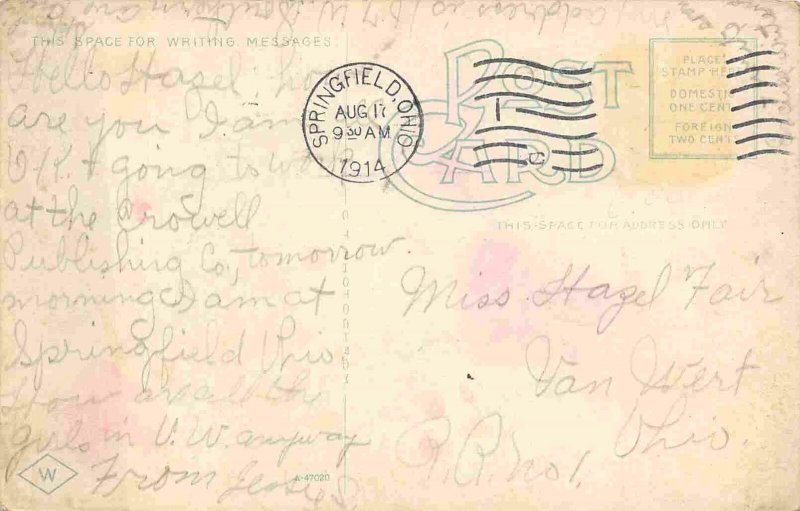 THIS SPACE FOR WRITING MESSAGES.
Hello Hazel, how
are you I am
O.K. & going to work
at the Crowell
Publishing Co., tomorrow
morning I am at
Springfield Ohio
How are all the
girls in V.W. anyway
From Jessie
My address is 187 W. Southern ave
POST CARD
PLACE STAMP HERE
DOMESTIC
ONE CENT
FOREIGN
TWO CENTS
SPRINGFIELD, OHIO
AUG 17
9 30 AM
1914
THIS SPACE FOR ADDRESS ONLY
Miss Hazel Fair
Van Wert
Ohio.
R.R. no 1.
W
A-47020